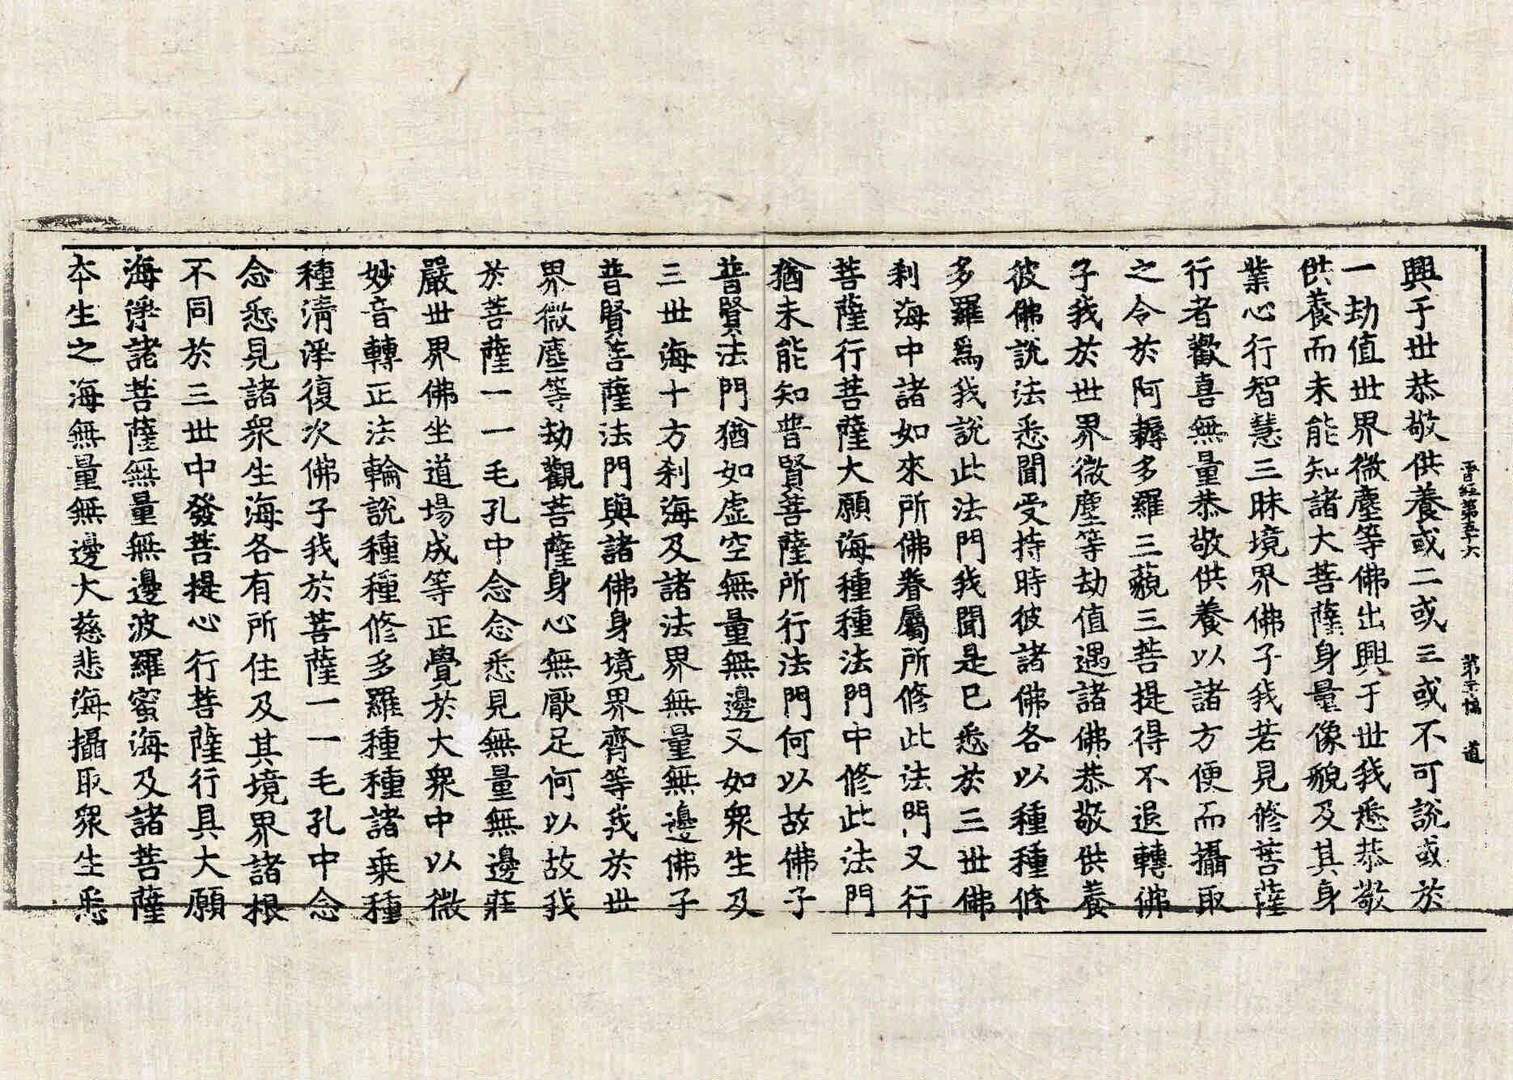 晉經第五十六 道
興于世恭敬供養或二或三或不可說或於
一劫值世界微塵等佛出興于世我悉恭敬
供養而未能知諸大菩薩身量像貌及其身
業心行智慧三昧境界佛子我若見修菩薩
行者歡喜無量恭敬供養以諸方便而攝取
之令於阿耨多羅三藐三菩提得不退轉佛
子我於世界微塵等劫值遇諸佛恭敬供養
彼佛說法悉聞受持時彼諸佛各以種種修
多羅爲我說此法門我聞是已悉於三世佛
刹海中諸如來所佛眷屬所修此法門又行
菩薩行菩薩大願海種種法門中修此法門
猶未能知普賢菩薩所行法門何以故佛子
普賢法門猶如虛空無量無邊又如衆生及
三世海十方刹海及諸法界無量無邊佛子
普賢菩薩法門與諸佛身境界齊等我於世
界微塵等劫觀菩薩身心無厭足何以故我
於菩薩一一毛孔中念念悉見無量無邊莊
嚴世界佛坐道場成等正覺於大衆中以微
妙音轉正法輪說種種修多羅種種諸乘種
種清淨復次佛子我於菩薩一一毛孔中念
念悉見諸衆生海各有所住及其境界諸根
不同於三世中發菩提心行菩薩行具大願
海淨諸菩薩無量無邊波羅蜜海及諸菩薩
本生之海無量無邊大慈悲海攝取衆生悉